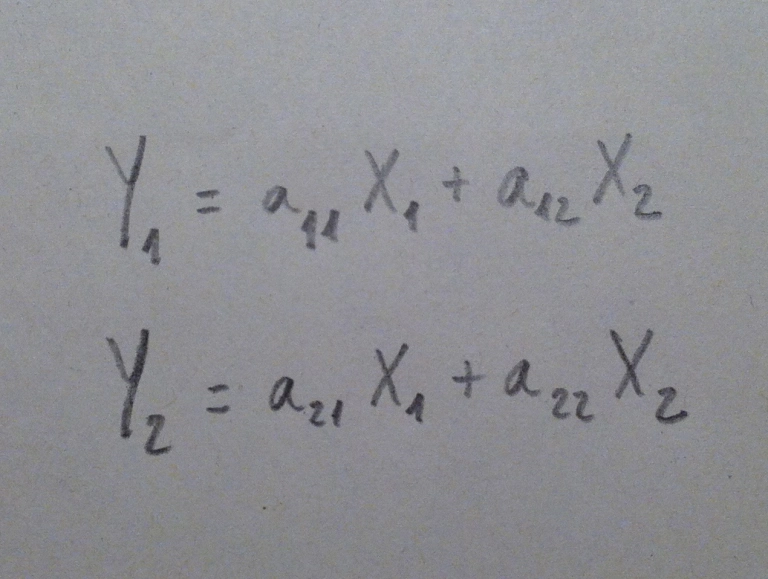 Y₁ = a₁₁ X₁ + a₁₂ X₂
Y₂ = a₂₁ X₁ + a₂₂ X₂